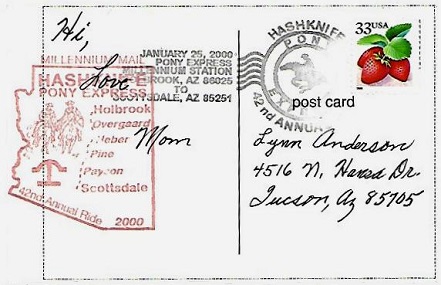 Hi,
Love
Mom
MILLENNIUM MAIL
HASHKNIFE
PONY EXPRESS
Holbrook
Overgaard
Heber
Pine
Payson
Scottsdale
42nd Annual Ride 2000
JANUARY 25, 2000
PONY EXPRESS
MILLENNIUM STATION
BROOK, AZ 86025
TO
SCOTTSDALE, AZ 85251
HASHKNIFE
PONY
EXPRESS
42nd ANNU
33USA
post card
Lynn Anderson
4516 N. Dr.
Tucson, Az 85705